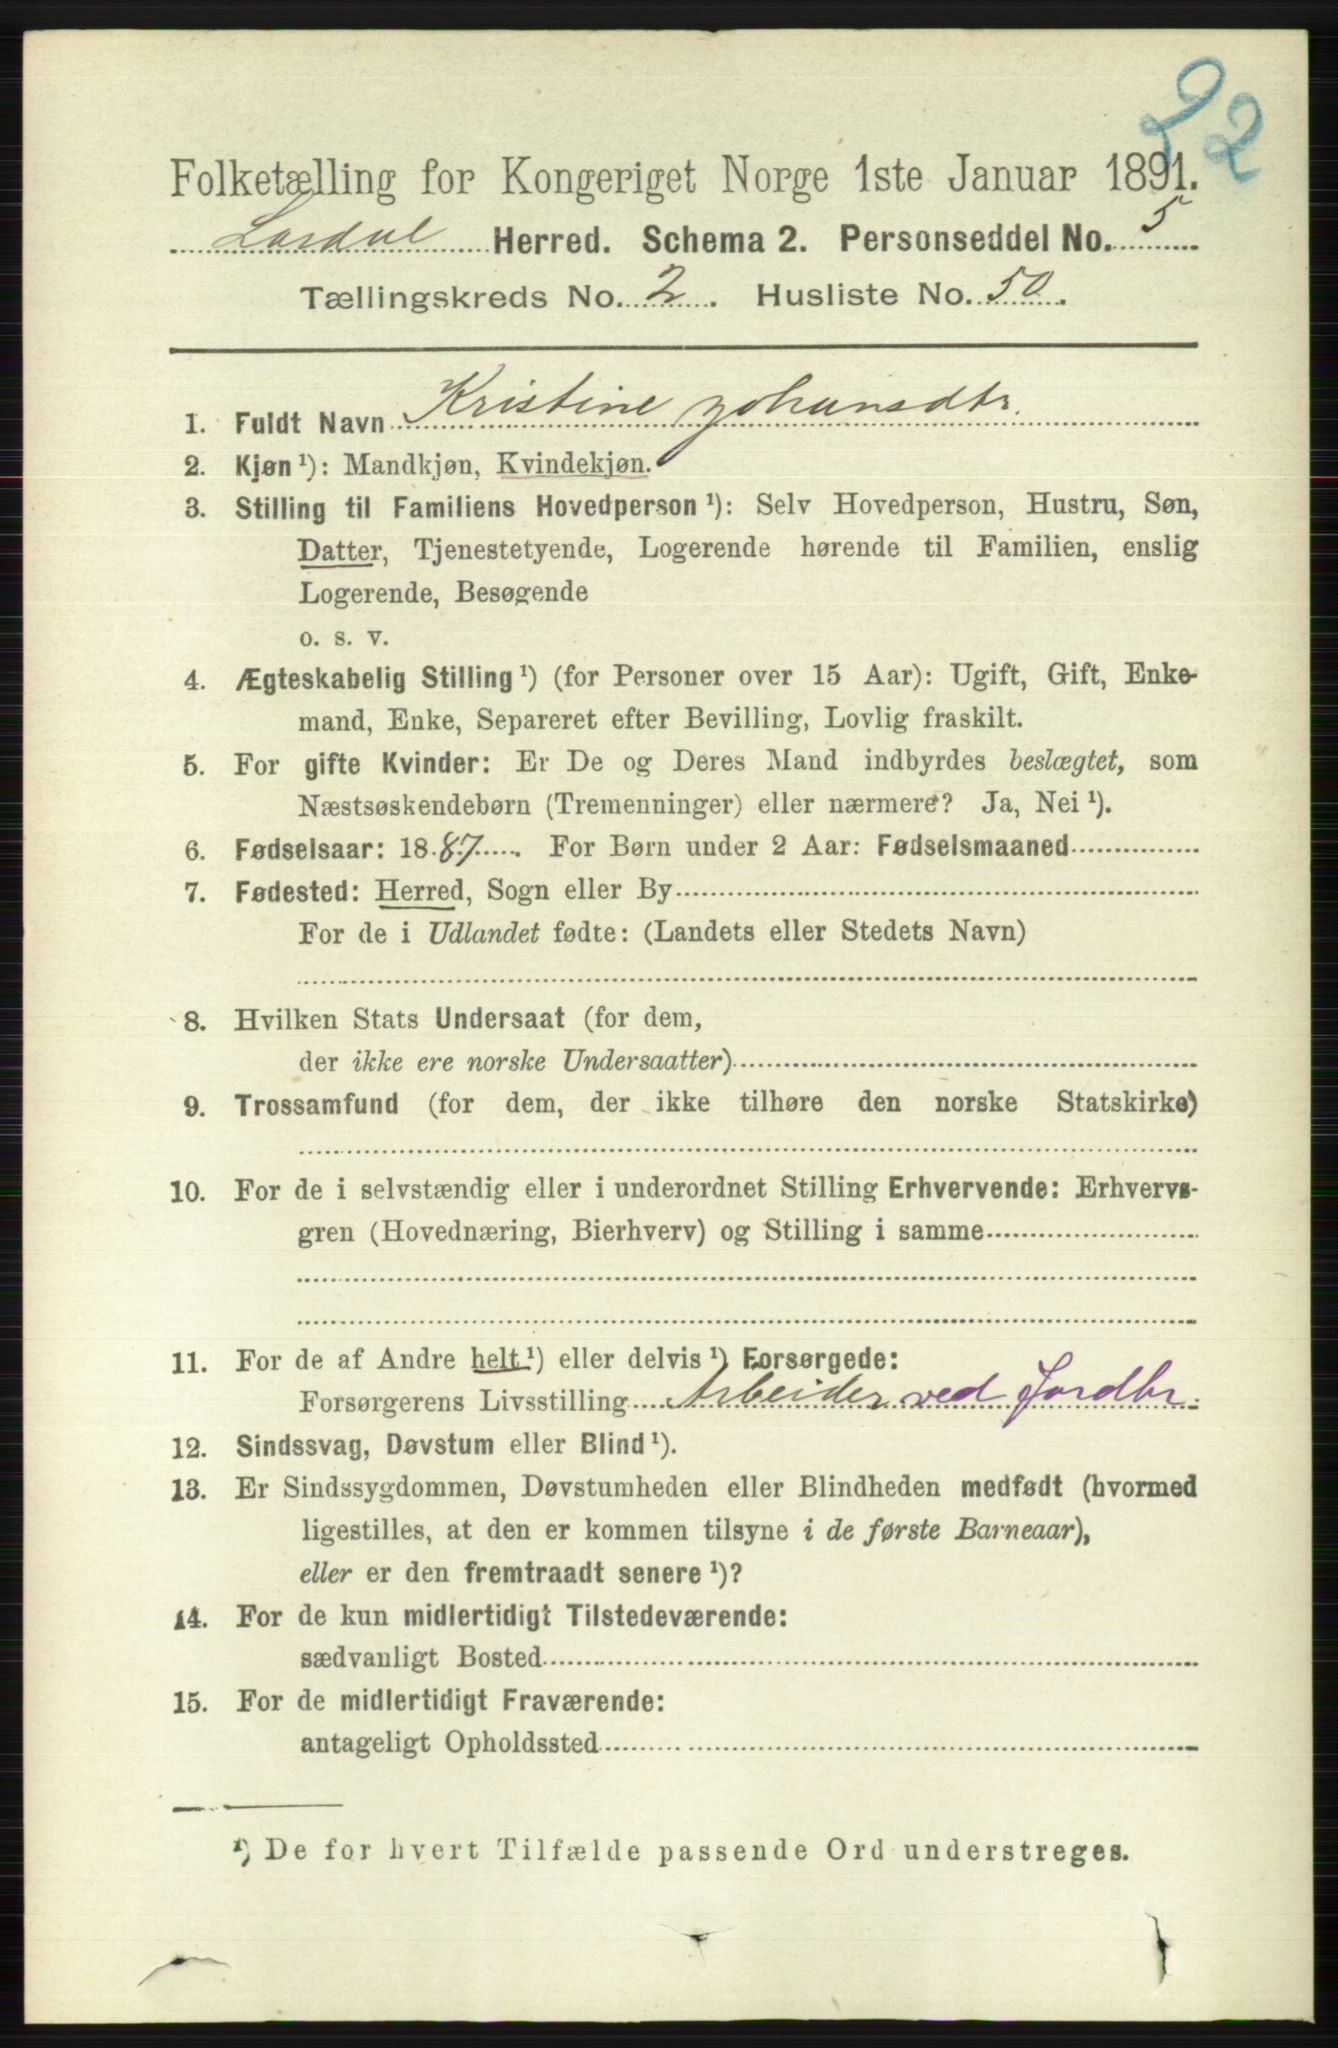 22
Folketælling for Kongeriget Norge 1ste Januar 1891.
Lardal Herred. Schema 2. Personseddel No. 5
Tællingskreds No. 2. Husliste No. 50.
1. Fuldt Navn Kristine Johansdtr.
2. Kjøn ¹): Mandkjøn, Kvindekjøn.
3. Stilling til Familiens Hovedperson ¹): Selv Hovedperson, Hustru, Søn,
Datter, Tjenestetyende, Logerende hørende til Familien, enslig
Logerende, Besøgende
o. s. v.
4. Ægteskabelig Stilling ¹) (for Personer over 15 Aar): Ugift, Gift, Enke-
mand, Enke, Separeret efter Bevilling, Lovlig fraskilt.
5. For gifte Kvinder: Er De og Deres Mand indbyrdes beslægtet, som
Næstsøskendebørn (Tremenninger) eller nærmere? Ja, Nei ¹).
6. Fødselsaar: 1887. For Børn under 2 Aar: Fødselsmaaned
7. Fødested: Herred, Sogn eller By
For de i Udlandet fødte: (Landets eller Stedets Navn)
8. Hvilken Stats Undersaat (for dem,
der ikke ere norske Undersaatter)
9. Trossamfund (for dem, der ikke tilhøre den norske Statskirke)
10. For de i selvstændig eller i underordnet Stilling Erhvervende: Erhvervs-
gren (Hovednæring, Bierhverv) og Stilling i samme
11. For de af Andre helt ¹) eller delvis ¹) Forsørgede:
Forsørgerens Livsstilling Arbeider ved Jordbr.
12. Sindssvag, Døvstum eller Blind ¹).
13. Er Sindssygdommen, Døvstumheden eller Blindheden medfødt (hvormed
ligestilles, at den er kommen tilsyne i de første Barneaar),
eller er den fremtraadt senere ¹)?
14. For de kun midlertidigt Tilstedeværende:
sædvanligt Bosted
15. For de midlertidigt Fraværende:
antageligt Opholdssted
¹) De for hvert Tilfælde passende Ord understreges.